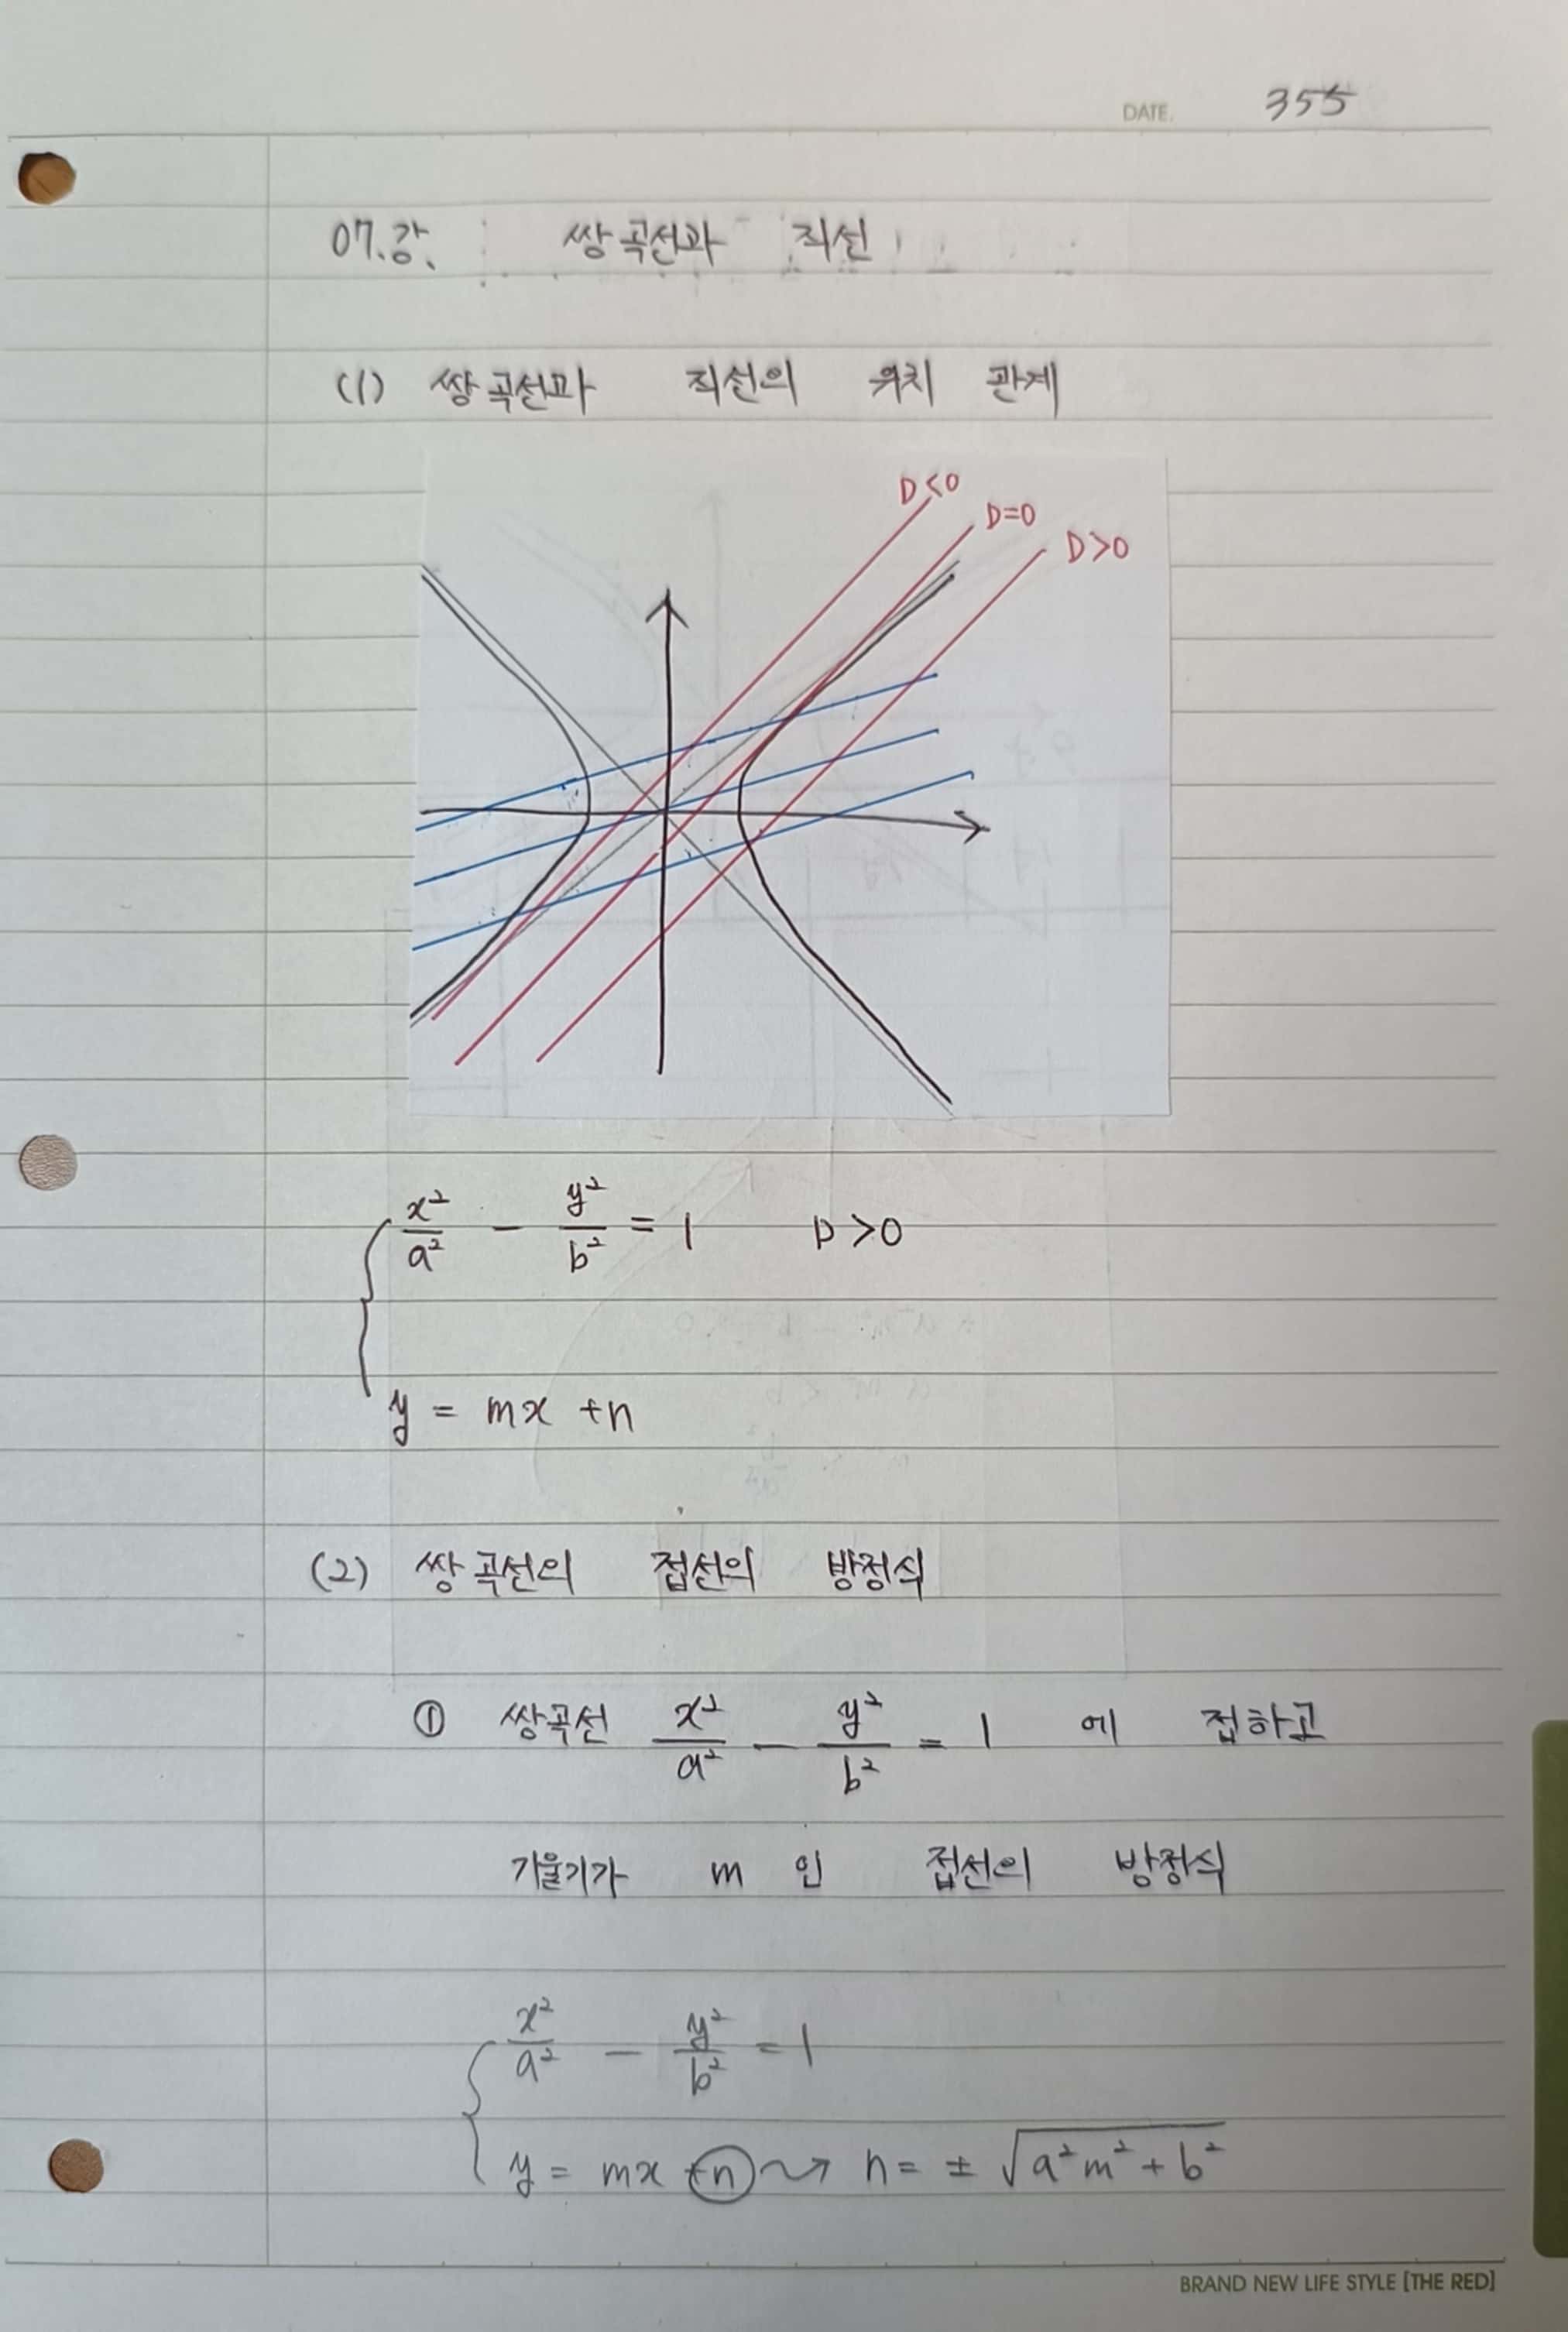 DATE. 355
07.강. 쌍곡선과 직선
(1) 쌍곡선과 직선의 위치 관계
D<0
D=0
D>0
x²/a² - y²/b² = 1 D>0
y = mx +n
(2) 쌍곡선의 접선의 방정식
① 쌍곡선 x²/a² - y²/b² = 1 에 접하고
기울기가 m 인 접선의 방정식
x²/a² - y²/b² = 1
y = mx +n ⇝ n = ± √(a²m² + b²)
BRAND NEW LIFE STYLE [THE RED]